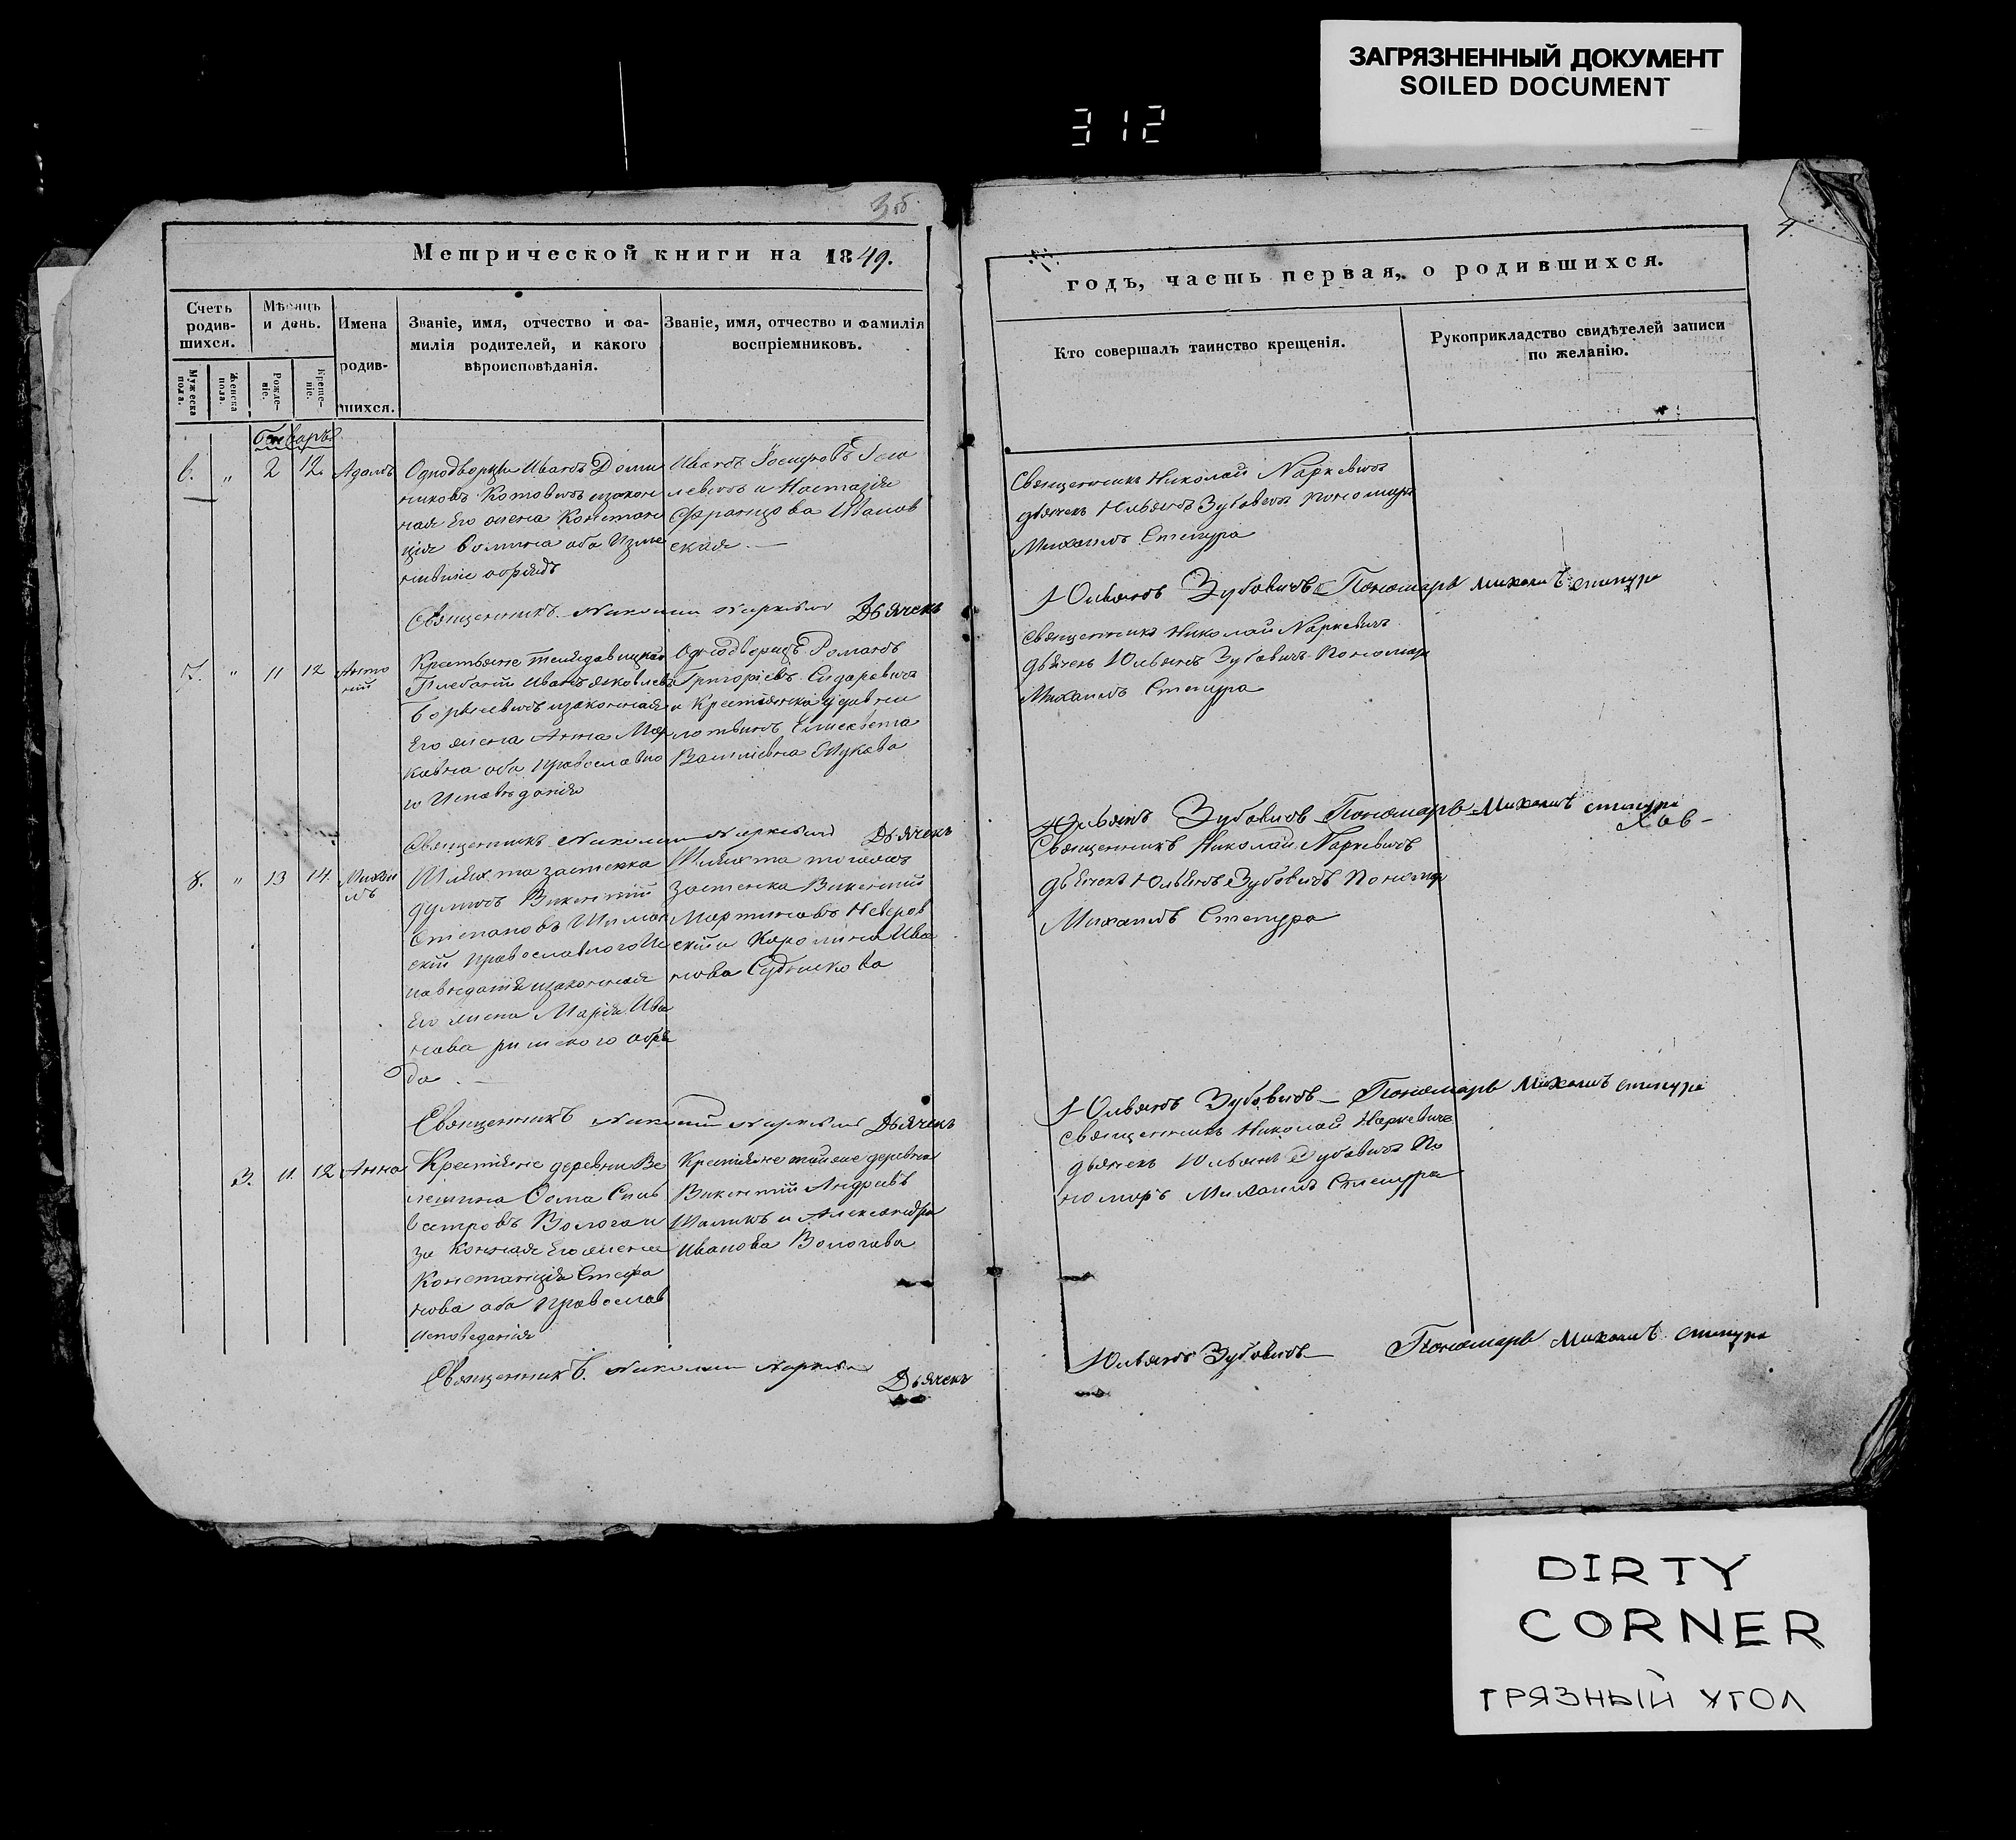 ЗАГРЯЗНЕННЫЙ ДОКУМЕНТ
SOILED DOCUMENT
312
3 об
4.
Метрической книги на 1849.
годъ, часть первая, о родившихся.
Счетъ родив-шихся.
Мѣсяцъ и день.
Имена родив-шихся.
Званіе, имя, отчество и фа-
милія родителей, и какого
вѣроисповѣданія.
Званіе, имя, отчество и фамилія
воспріемниковъ.
Кто совершалъ таинство крещенія.
Рукоприкладство свидѣтелей записи
по желанію.
Мужеска пола.
Женска пола.
Рожде-ніе.
Креще-ніе.
Генварь
6. " 2 12 Адамъ
Однодворцы Иванъ Доми
никовъ Котовичъ изакон
ная Его жена Констан
ція
обрядъ
Иванъ
левичъ и Настазія
Францова Иванов
ская
Священникъ Николай Наркевичъ
дьячекъ Юльянъ Зубовичъ пономарь
Михаилъ Степура
Священникъ Николай Наркевичъ Дьячекъ
Юльянъ Зубовичъ Пономарь Михаилъ Степура
7. " 11 12 Анто
ній
Крестьяне
Плебаніи Иванъ Яковлевъ
изаконная
Его жена Анна Мар
кавна оба православно
го Исповѣданія
Однодворецъ Романъ
Григоріевъ Сидаровичъ
и Крестьянка
Елисавета
Василіевна
Священникъ Николай Наркевичъ
дьячекъ Юльянъ Зубовичъ Пономарь
Михаилъ Степура
Священникъ Николай Наркевичъ Дьячекъ
Юльянъ Зубовичъ Пономарь Михаилъ Степура
8. " 13 14 Михаи
лъ
Шляхта застенка
Викентій
Степановъ Шиман
скій православного Ис
поведанія изаконная
Его жена Марія Ива
нова римского обря
да. —
Шляхта тогожъ
застенка Викентій
Мартиновъ Неверов
скій и Каролина Ива
нова
Священникъ Николай Наркевичъ
дьячекъ Юльянъ Зубовичъ Пономарь
Михаилъ Степура
Священникъ Николай Наркевичъ Дьячекъ
Юльянъ Зубовичъ — Пономарь Михаилъ Степура
3. 11 12 Анна
Крестьяне деревни Ве
Фома Силь
вестровъ Вологаи
законная Его жена
Констанція Стефа
нова оба Православ
исповеданія
Крестьяне тойже деревни
Викентій Андреевъ
и Александра
Иванова Вологова
Священникъ Николай Наркевичъ
дьячекъ Юльянъ Зубовичъ По
номаръ Михаилъ Степура
Священникъ Николай Наркевичъ Дьячекъ
Юльянъ Зубовичъ — Пономарь Михаилъ Степура
DIRTY
CORNER
ГРЯЗНЫЙ УГОЛ